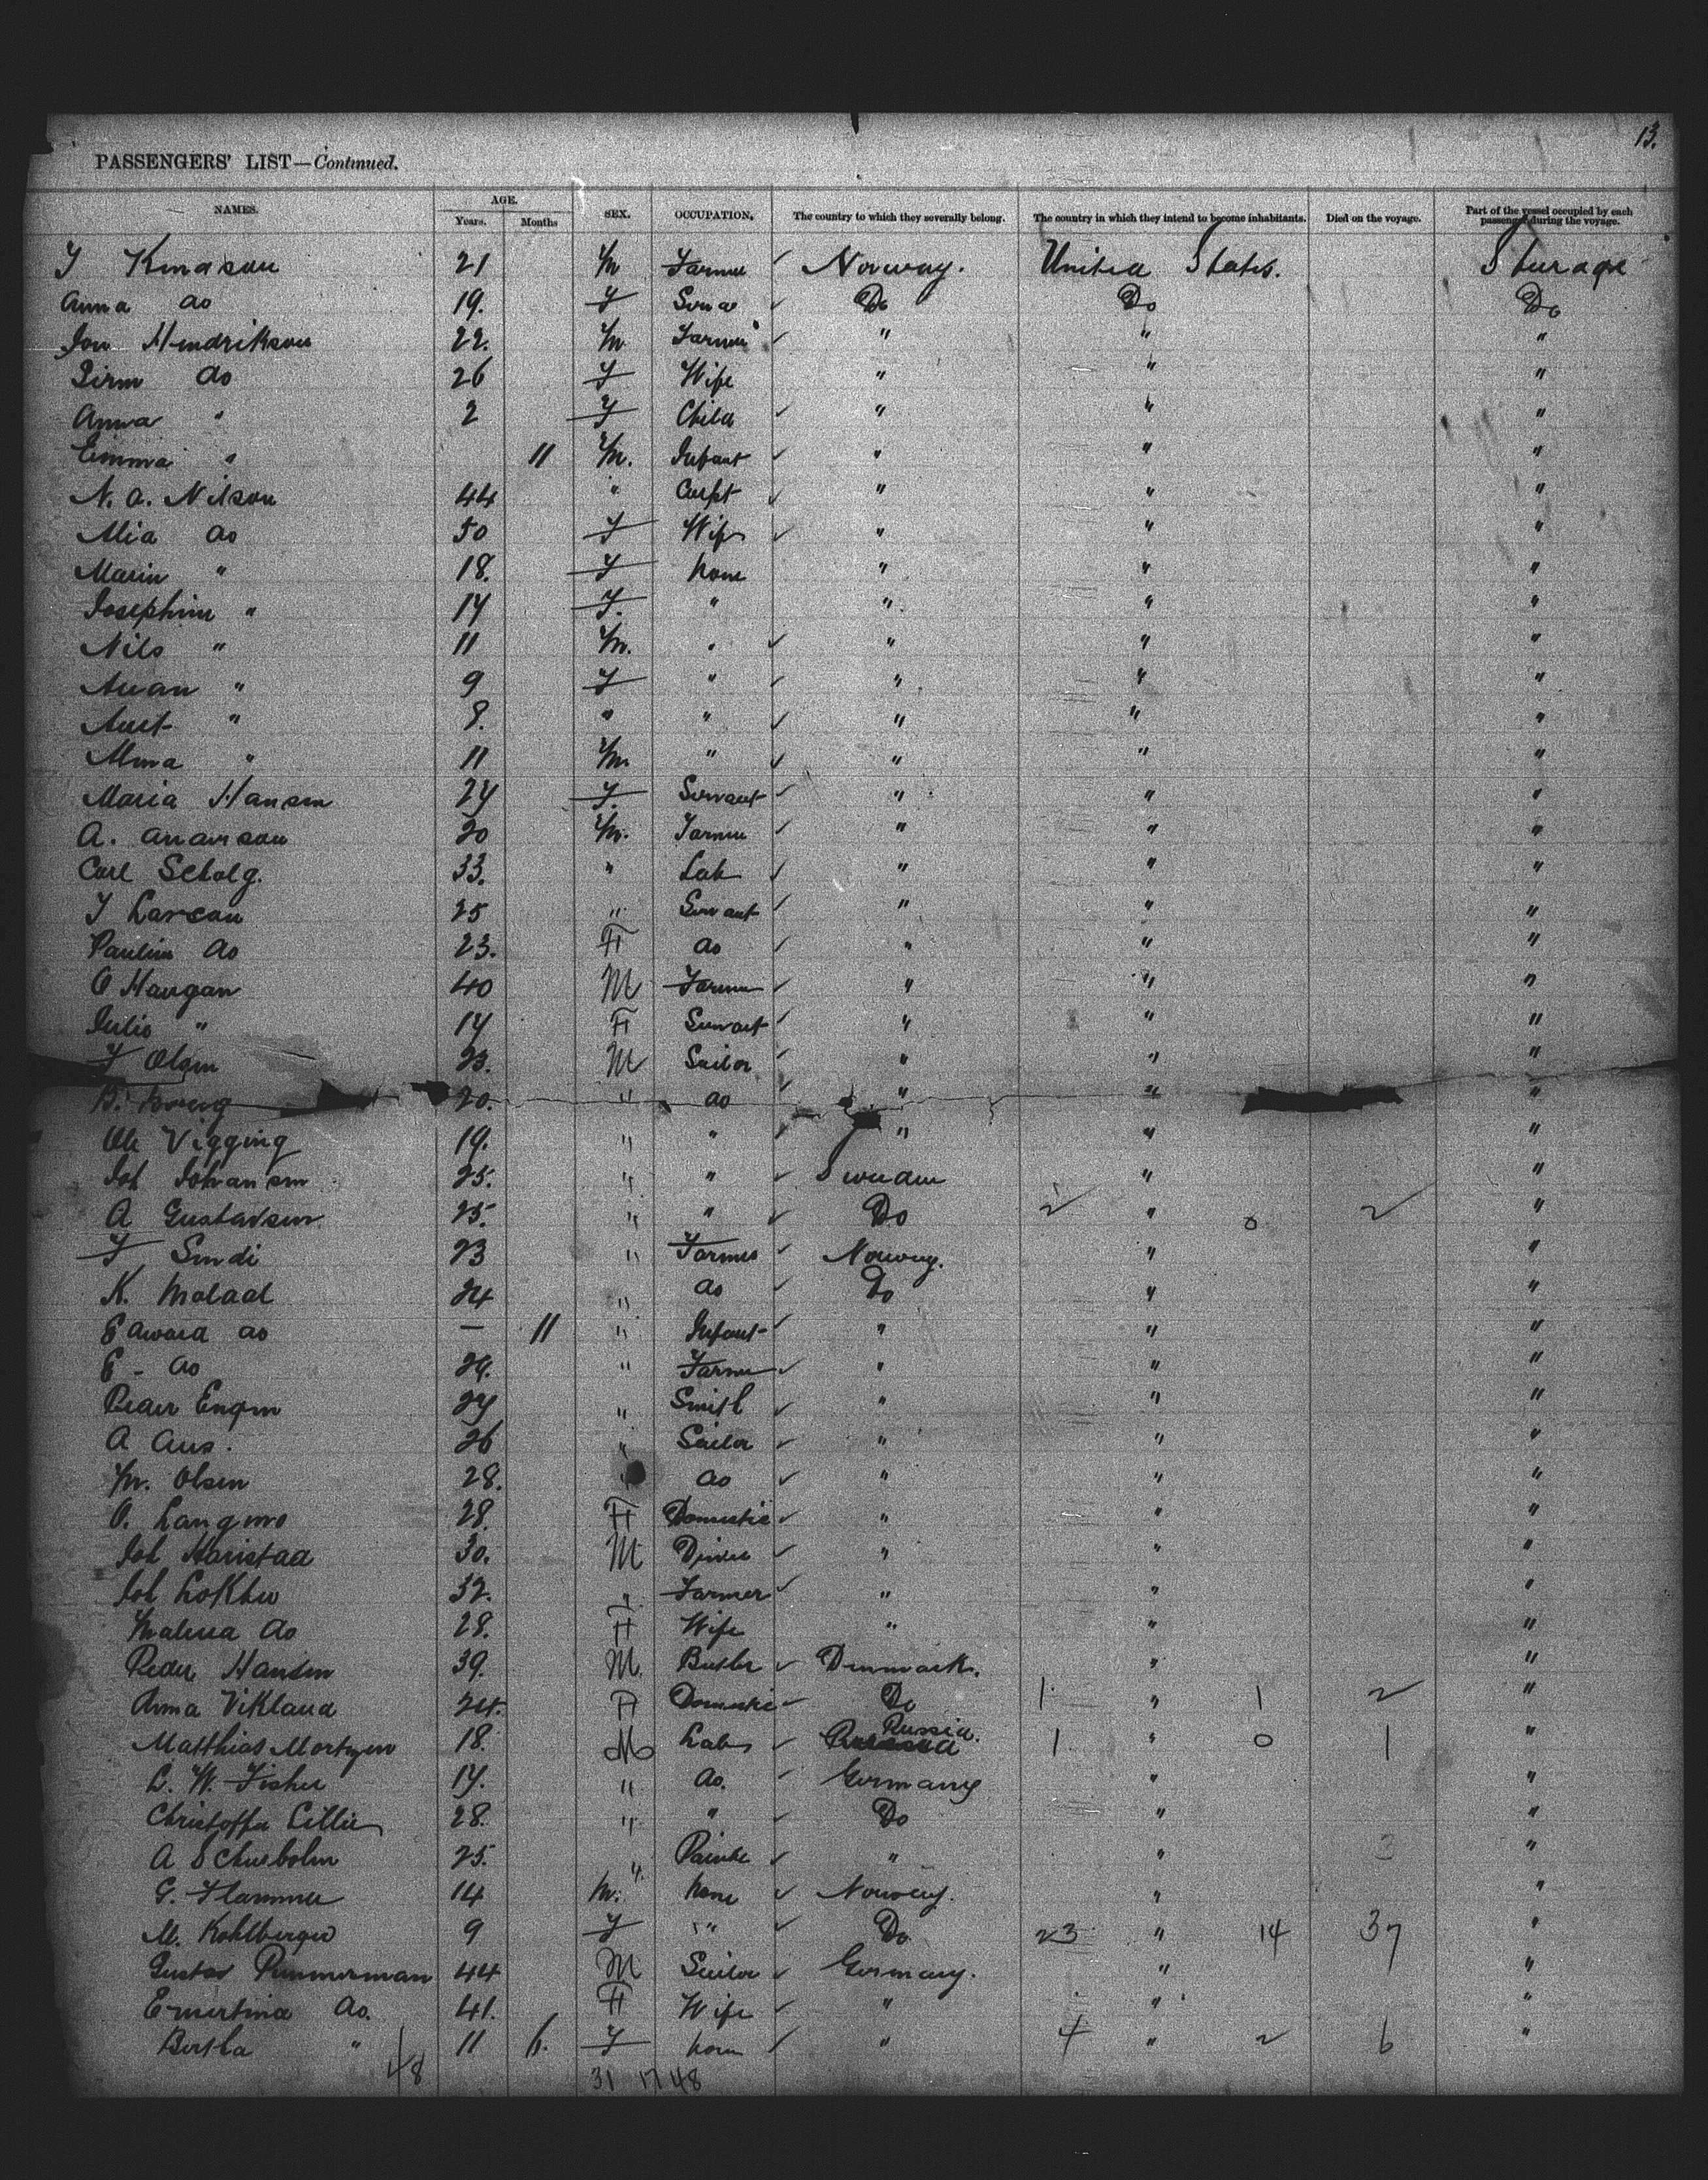 13.
PASSENGERS' LIST—Continued.
NAMES. AGE. Years. Months SEX. OCCUPATION. The country to which they severally belong. The country in which they intend to become inhabitants. Died on the voyage. Part of the vessel occupied by each passenger during the voyage.
21 M Farmer Norway. United States. Sturage
Anna do 19. F Do Do Do
Jon Hendrikson 22. M Farmer " " "
do 26 F Wife " " "
Anna " 2 F Child " " "
Emma " 11 M. Infant " " "
N. A. Nilson 44 " Carpt " " "
Alia do 50 F Wife " " "
Marin " 18. F None " " "
Josephine " 17 F. " " " "
Nils " 11 M. " " " "
" 9 F " " " "
" 8. " " " " "
Alma " 11 M. " " " "
Maria Hansen 27 F. Servant " " "
A. Anderson 20 M. Farmer " " "
Carl 33. " Lab " " "
J Larson 25 " Servant " " "
Paulin do 23. F do " " "
O Haugan 40 M Farmer " " "
Julie " 17 F Servant " " "
F Olsen 23. M Sailor " " "
20. " do " " "
Ole Vigging 19. " " " " "
Joh Johansen 25. " " Sweden " "
A Gustavsen 25. " " Do 2 " 0 2 "
F Sundi 23 " Farmer Norway. " "
K. Molaal 24 " do Do " "
Edward do — 11 " Infant " " "
E - do 24. " Farmer " " "
Peder Engen 27 " Smith " " "
A Aus. 26 " Sailor " " "
M. Olsen 28. " do " " "
O. Langmo 28. F Domestic " " "
Joh Haristad 30. M Driver " " "
Joh 32. " Farmer " " "
Malena do 28. F Wife " " "
Peder Hansen 39. M Butler Denmark. " "
Anna Vikland 24. F Domestic Do 1 " 1 2 "
Matthias Mortzen 18. M Lab Russia. 1 " 0 1 "
L. W. Fisher 17. " do. Germany " "
Christoffer Lillie 28. " " Do " "
A 25. " Painter " " "
G. Flammer 14 M. None Norway. " "
M. Kohlberger 9 F " Do 23 " 14 37 "
Gustav 44 M Sailor Germany. " "
do. 41. F Wife " " "
Bertha " 11 6. F None " 4 " 2 6 "
48 31 17 48